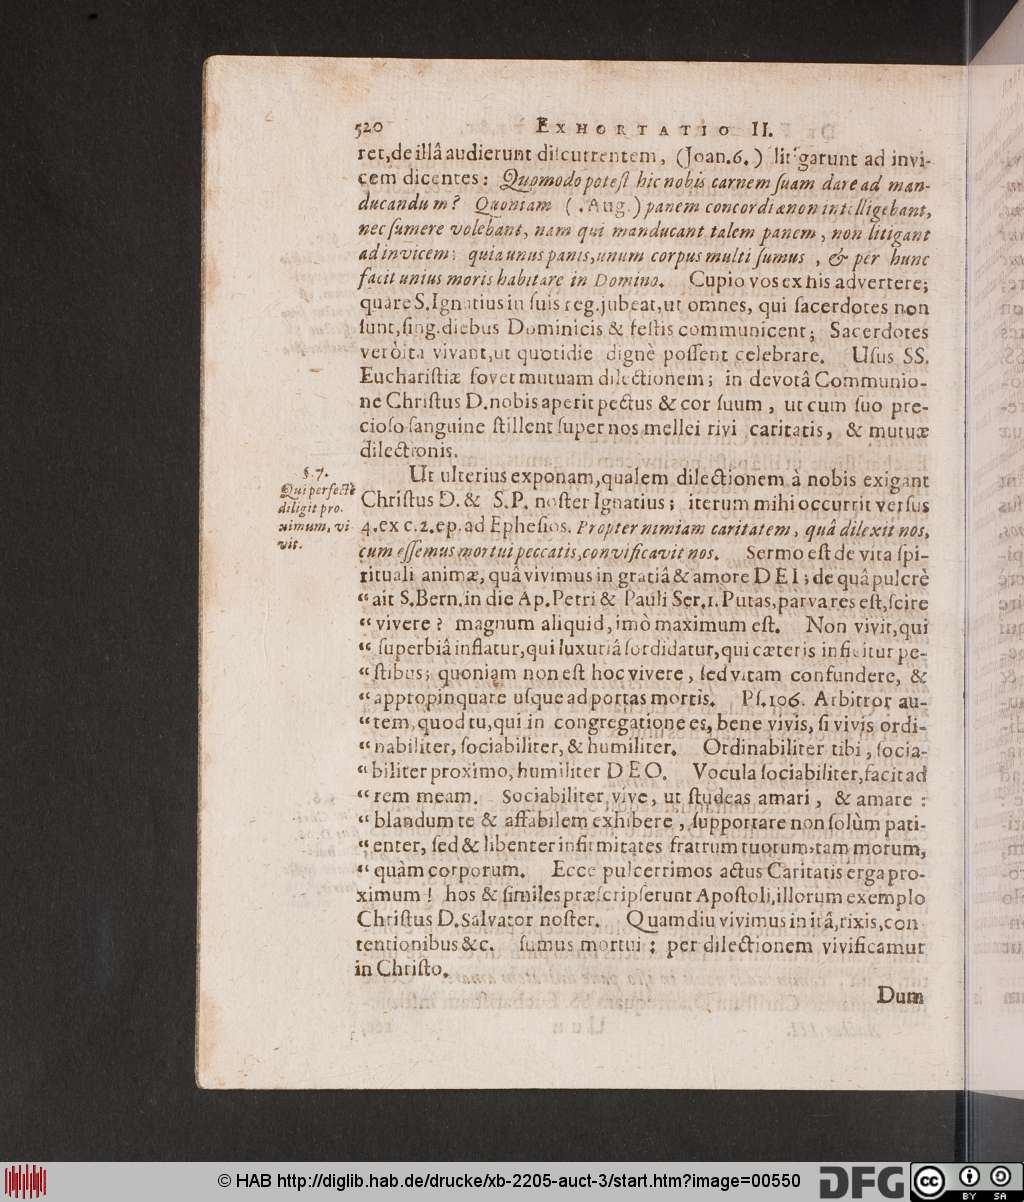 520 EXHORTATIO II.
ret, de illâ audierunt diſcurrentem, (Joan. 6.) litigarunt ad invi-
cem dicentes: Quomodo poteſt hic nobis carnem ſuam dare ad man-
ducandum? Quoniam (. Aug.) panem concordiæ non intelligebant,
nec ſumere volebant, nam qui manducant talem panem, non litigant
ad invicem: quia unus panis, unum corpus multi ſumus, & per hunc
facit unius moris habitare in Domino. Cupio vos ex his advertere;
quare S. Ignatius in ſuis reg. jubeat, ut omnes, qui ſacerdotes non
ſunt, ſing. diebus Dominicis & feſtis communicent; Sacerdotes
verò ita vivant, ut quotidie dignè poſſent celebrare. Uſus SS.
Euchariſtiæ fovet mutuam dilectionem; in devotâ Communio-
ne Chriſtus D. nobis aperit pectus & cor ſuum, ut cum ſuo pre-
cioſo ſanguine ſtillent ſuper nos mellei rivi caritatis, & mutuæ
dilectionis.
§. 7.
Qui perfectè
diligit pro-
ximum, vi
vit.
Ut ulterius exponam, qualem dilectionem à nobis exigant
Chriſtus D. & S. P. noſter Ignatius; iterum mihi occurrit verſus
4. ex c. 2. ep. ad Epheſios. Propter nimiam caritatem, quâ dilexit nos,
cum eſſemus mortui peccatis, convificavit nos. Sermo eſt de vita ſpi-
rituali animæ, quâ vivimus in gratiâ & amore DEI; de quâ pulcrè
“ ait S. Bern. in die Ap. Petri & Pauli Ser. 1. Putas, parva res eſt, ſcire
“ vivere? magnum aliquid, imò maximum eſt. Non vivit, qui
“ ſuperbiâ inflatur, qui luxuriâ ſordidatur, qui cæteris inficitur pe-
“ ſtibus; quoniam non eſt hoc vivere, ſed vitam confundere, &
“ appropinquare uſque ad portas mortis. Pſ. 106. Arbitror au-
“ tem, quod tu, qui in congregatione es, bene vivis, ſi vivis ordi-
“ nabiliter, ſociabiliter, & humiliter. Ordinabiliter tibi, ſocia-
“ biliter proximo, humiliter DEO. Vocula ſociabiliter, facit ad
“ rem meam. Sociabiliter vive, ut ſtudeas amari, & amare:
“ blandum te & affabilem exhibere, ſupportare non ſolùm pati-
“ enter, ſed & libenter infirmitates fratrum tuorum, tam morum,
“ quàm corporum. Ecce pulcerrimos actus Caritatis erga pro-
ximum! hos & ſimiles præſcripſerunt Apoſtoli, illorum exemplo
Chriſtus D. Salvator noſter. Quamdiu vivimus in irâ, rixis, con
tentionibus &c. ſumus mortui: per dilectionem vivificamur
in Chriſto.
Dum
© HAB http://diglib.hab.de/drucke/xb-2205-auct-3/start.htm?image=00550
DFG
cc BY SA